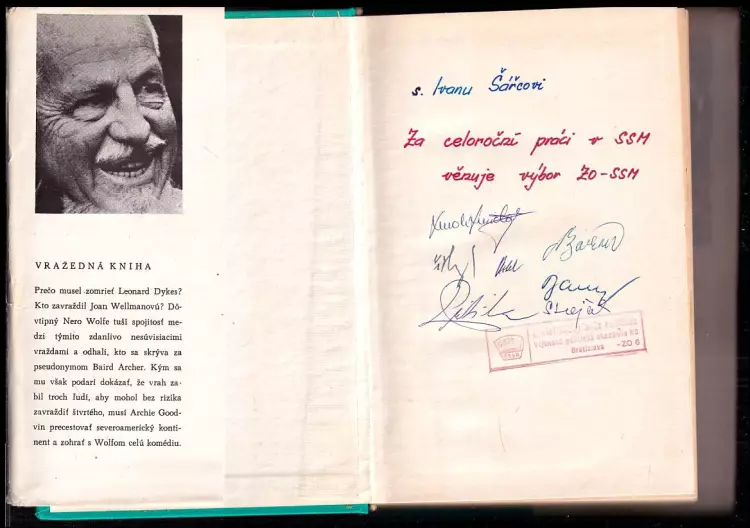 VRAŽEDNÁ KNIHA
Prečo musel zomrieť Leonard Dykes?
Kto zavraždil Joan Wellmanovú? Dô-
vtipný Nero Wolfe tuší spojitosť me-
dzi týmito zdanlivo nesúvisiacimi
vraždami a odhalí, kto sa skrýva za
pseudonymom Baird Archer. Kým sa
mu však podarí dokázať, že vrah za-
bil troch ľudí, aby mohol bez rizika
zavraždiť štvrtého, musí Archie Good-
vin precestovať severoamerický konti-
nent a zohrať s Wolfom celú komédiu.
s. Ivanu Šářcovi
Za celoroční práci v SSM
věnuje výbor ZO-SSM
Bratislava -ZO 6